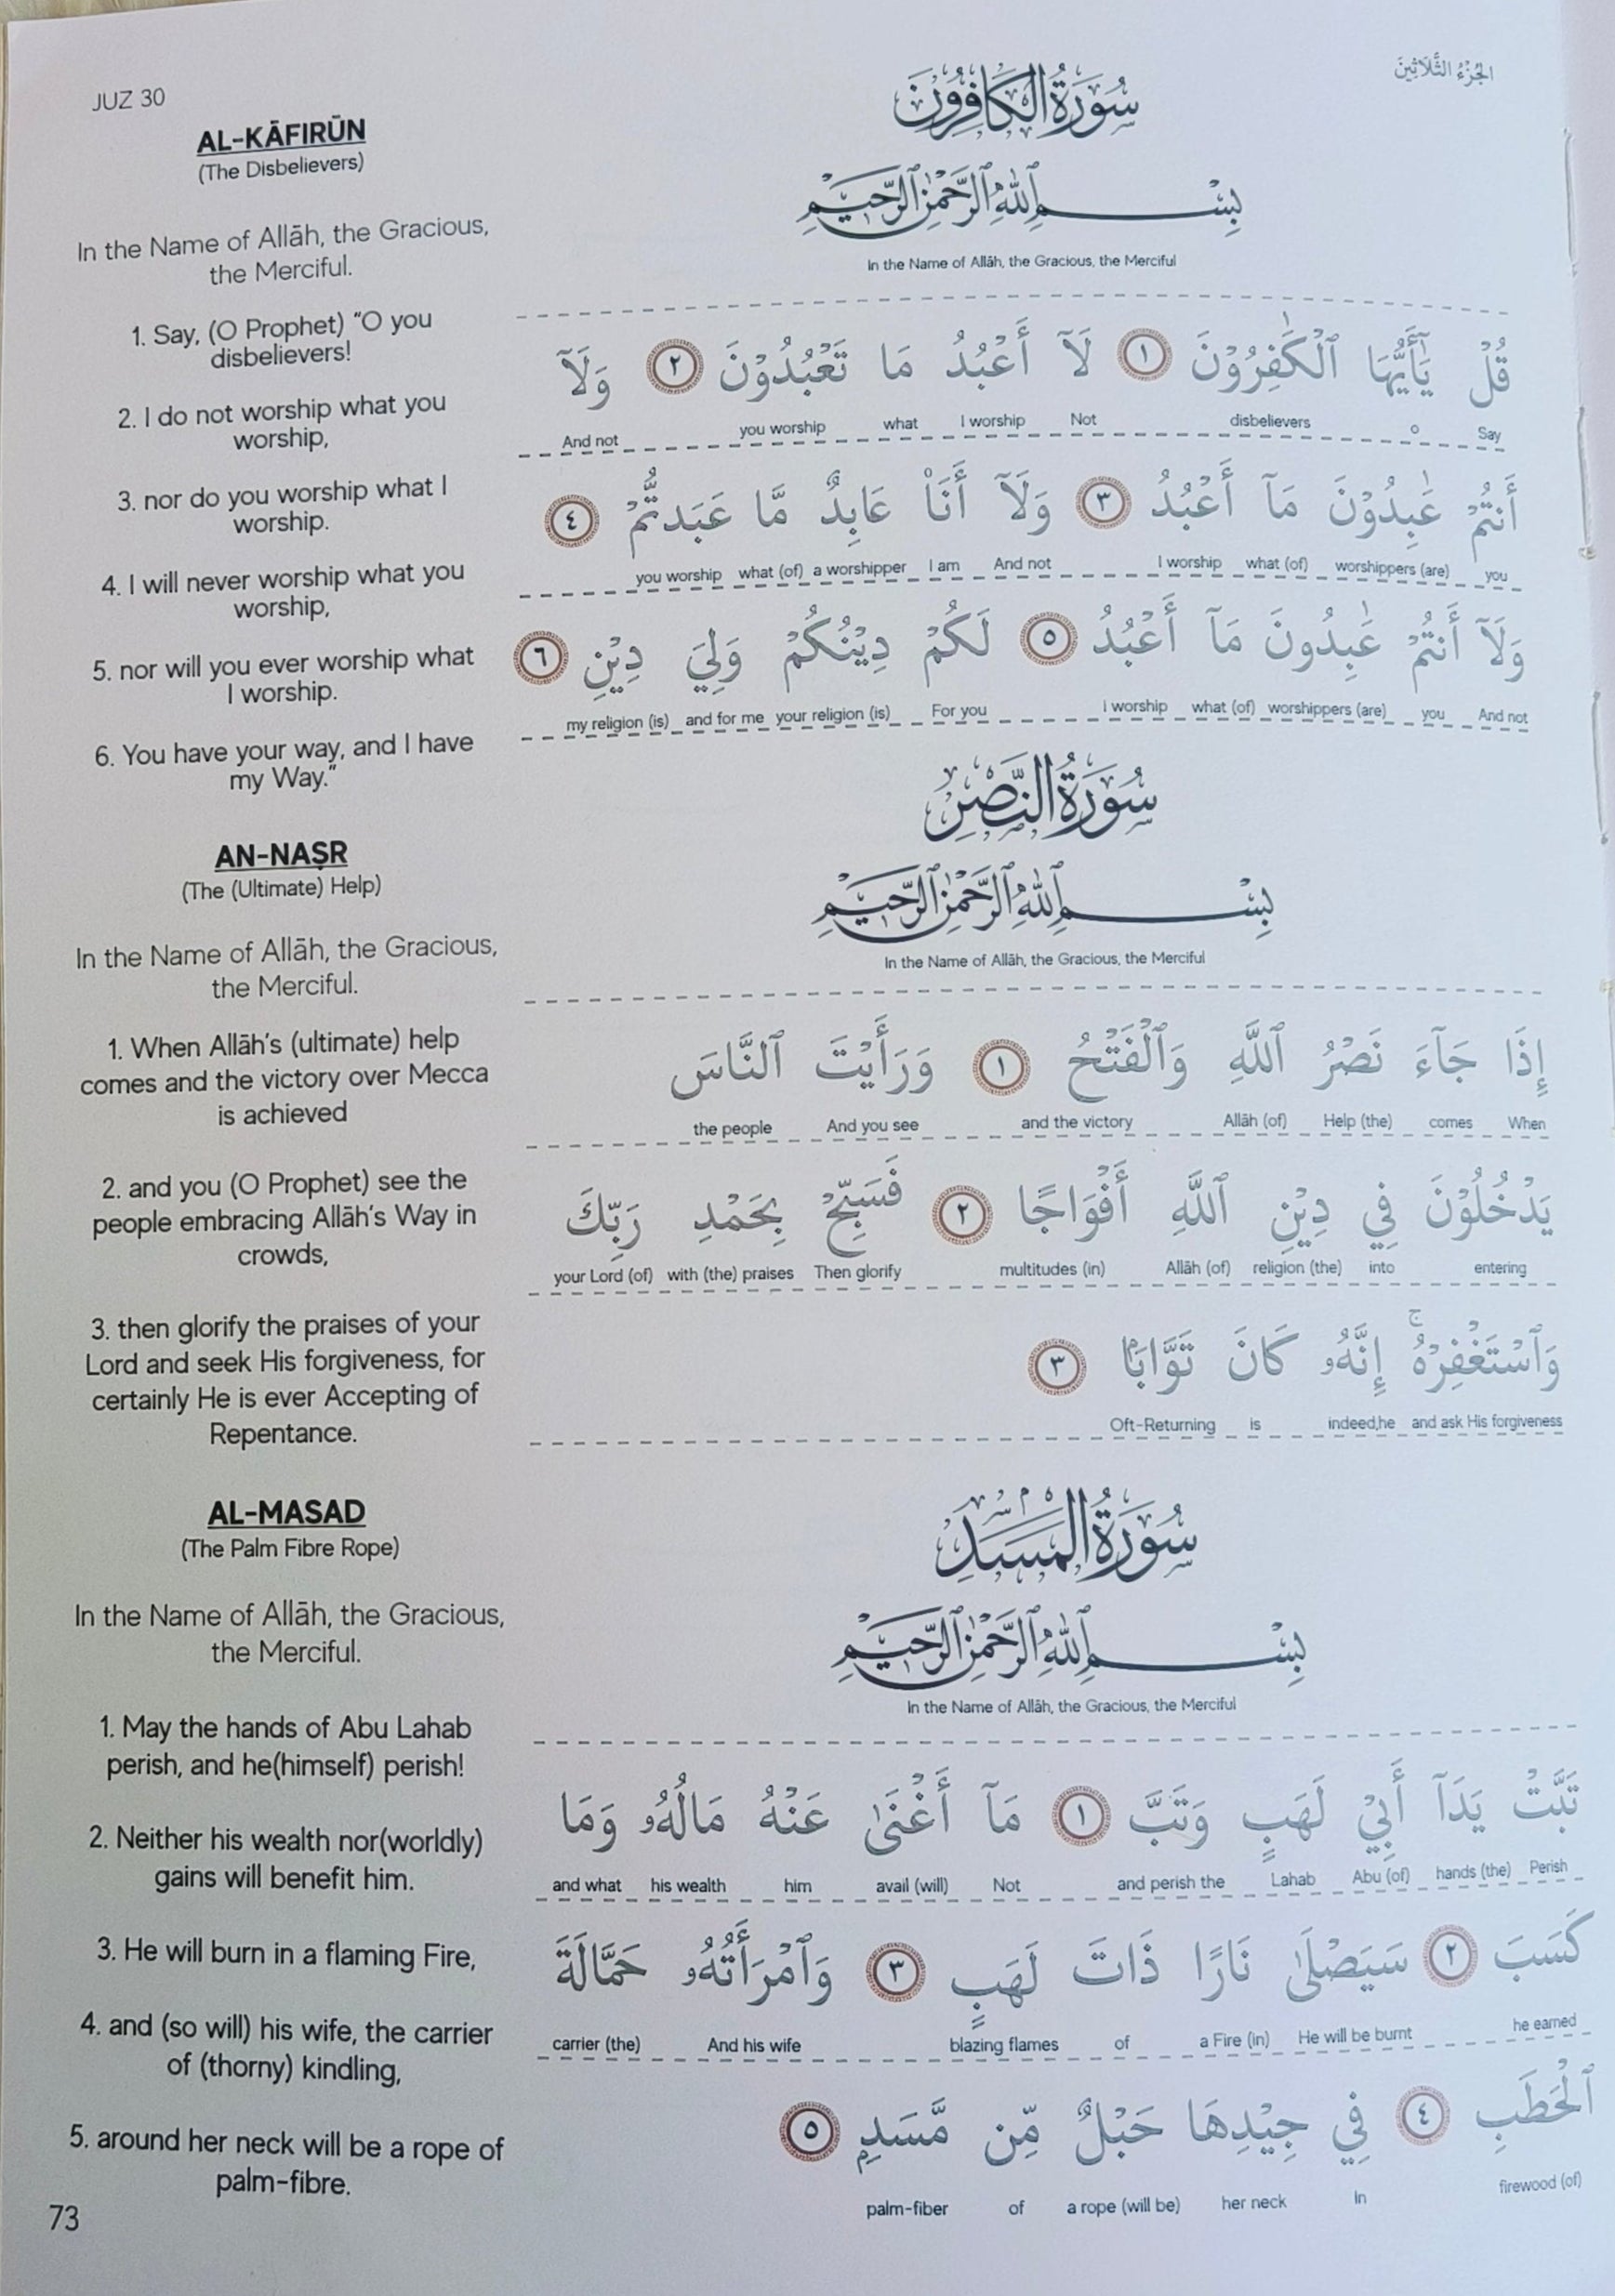 JUZ 30
الجُزْءُ الثَّلَاثِينَ
AL-KĀFIRŪN
(The Disbelievers)
In the Name of Allāh, the Gracious,
the Merciful.
1. Say, (O Prophet) “O you
disbelievers!
2. I do not worship what you
worship,
3. nor do you worship what I
worship.
4. I will never worship what you
worship,
5. nor will you ever worship what
I worship.
6. You have your way, and I have
my Way.”
سُوْرَةُ الْكَافِرُوْنَ
بِسْمِ ٱللَّهِ ٱلرَّحْمٰنِ ٱلرَّحِيْمِ
In the Name of Allāh, the Gracious, the Merciful
قُلْ يَٰٓأَيُّهَا ٱلْكَٰفِرُوْنَ ١ لَآ أَعْبُدُ مَا تَعْبُدُوْنَ ٢ وَلَآ
And not you worship what I worship Not disbelievers O Say
أَنتُمْ عَٰبِدُوْنَ مَآ أَعْبُدُ ٣ وَلَآ أَنَا۠ عَابِدٌ مَّا عَبَدتُّمْ ٤
you worship what (of) a worshipper I am And not I worship what (of) worshippers (are) you
وَلَآ أَنتُمْ عَٰبِدُونَ مَآ أَعْبُدُ ٥ لَكُمْ دِيْنُكُمْ وَلِيَ دِيْنِ ٦
my religion (is) and for me your religion (is) For you I worship what (of) worshippers (are) you And not
AN-NAṢR
(The (Ultimate) Help)
In the Name of Allāh, the Gracious,
the Merciful.
1. When Allāh’s (ultimate) help
comes and the victory over Mecca
is achieved
2. and you (O Prophet) see the
people embracing Allāh’s Way in
crowds,
3. then glorify the praises of your
Lord and seek His forgiveness, for
certainly He is ever Accepting of
Repentance.
سُوْرَةُ النَّصْرِ
بِسْمِ ٱللَّهِ ٱلرَّحْمٰنِ ٱلرَّحِيْمِ
In the Name of Allāh, the Gracious, the Merciful
إِذَا جَآءَ نَصْرُ ٱللَّهِ وَٱلْفَتْحُ ١ وَرَأَيْتَ ٱلنَّاسَ
the people And you see and the victory Allāh (of) Help (the) comes When
يَدْخُلُوْنَ فِي دِيْنِ ٱللَّهِ أَفْوَاجًا ٢ فَسَبِّحْ بِحَمْدِ رَبِّكَ
your Lord (of) with (the) praises Then glorify multitudes (in) Allāh (of) religion (the) into entering
وَٱسْتَغْفِرْهُ ۚ إِنَّهُۥ كَانَ تَوَّابًۢا ٣
Oft-Returning is indeed,he and ask His forgiveness
AL-MASAD
(The Palm Fibre Rope)
In the Name of Allāh, the Gracious,
the Merciful.
1. May the hands of Abu Lahab
perish, and he(himself) perish!
2. Neither his wealth nor(worldly)
gains will benefit him.
3. He will burn in a flaming Fire,
4. and (so will) his wife, the carrier
of (thorny) kindling,
5. around her neck will be a rope of
palm-fibre.
سُوْرَةُ الْمَسَدِ
بِسْمِ ٱللَّهِ ٱلرَّحْمٰنِ ٱلرَّحِيْمِ
In the Name of Allāh, the Gracious, the Merciful
تَبَّتْ يَدَآ أَبِيْ لَهَبٍ وَتَبَّ ١ مَآ أَغْنَىٰ عَنْهُ مَالُهُۥ وَمَا
and what his wealth him avail (will) Not and perish the Lahab Abu (of) hands (the) Perish
كَسَبَ ٢ سَيَصْلَىٰ نَارًا ذَاتَ لَهَبٍ ٣ وَٱمْرَأَتُهُۥ حَمَّالَةَ
carrier (the) And his wife blazing flames of a Fire (in) He will be burnt he earned
ٱلْحَطَبِ ٤ فِي جِيْدِهَا حَبْلٌ مِّن مَّسَدٍۭ ٥
palm-fiber of a rope (will be) her neck In firewood (of)
73